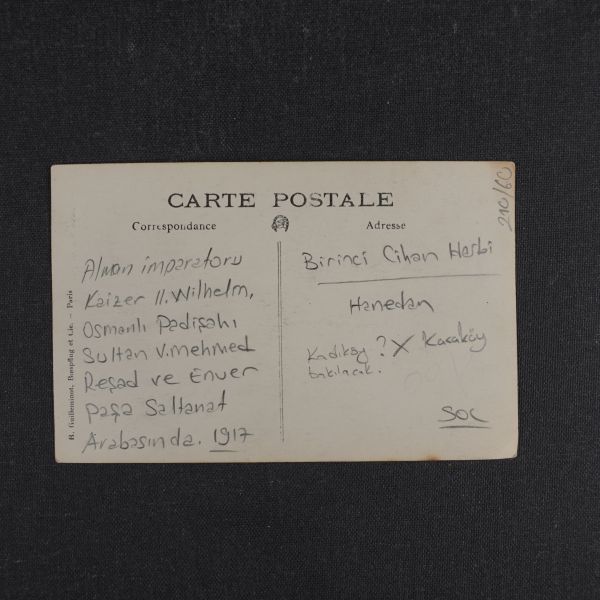 CARTE POSTALE
Correspondance
Adresse
210/60
Alman imparatoru
Kaizer II. Wilhelm,
Osmanlı Padişahı
Sultan V. Mehmed
Reşad ve Enver
paşa Saltanat
Arabasında. 1917
Birinci Cihan Harbi
Hanedan
Kadıköy ? X Karaköy
bakılacak.
SOC
B. Guilleminot, Bœspflug et Cie. – Paris